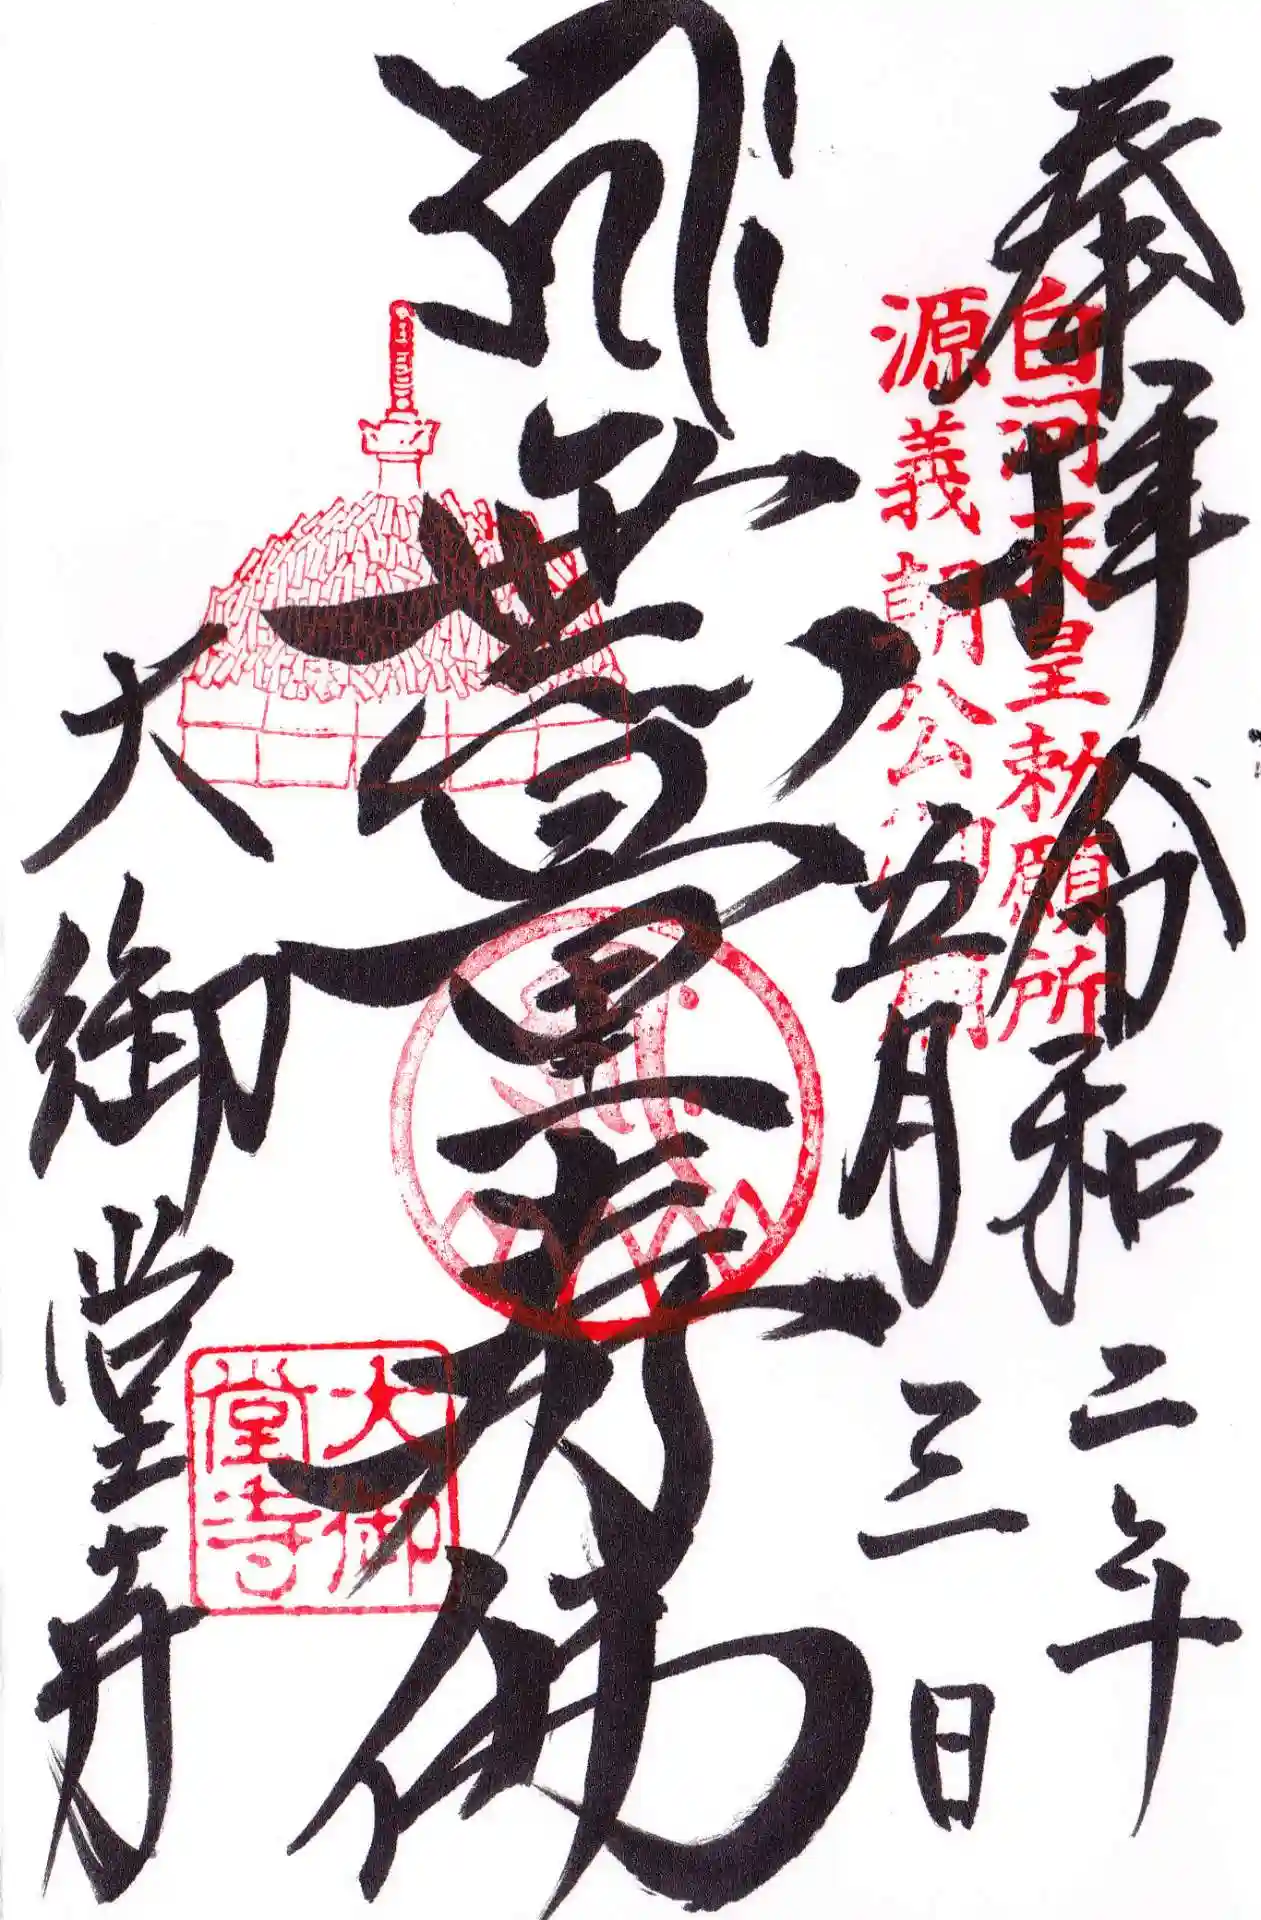 奉拝 令和二年
五月三日
白河天皇勅願所
源義朝公御廟
𑖮𑖿𑖨𑖱𑖾 無量寿佛
大御堂寺
大御
堂寺